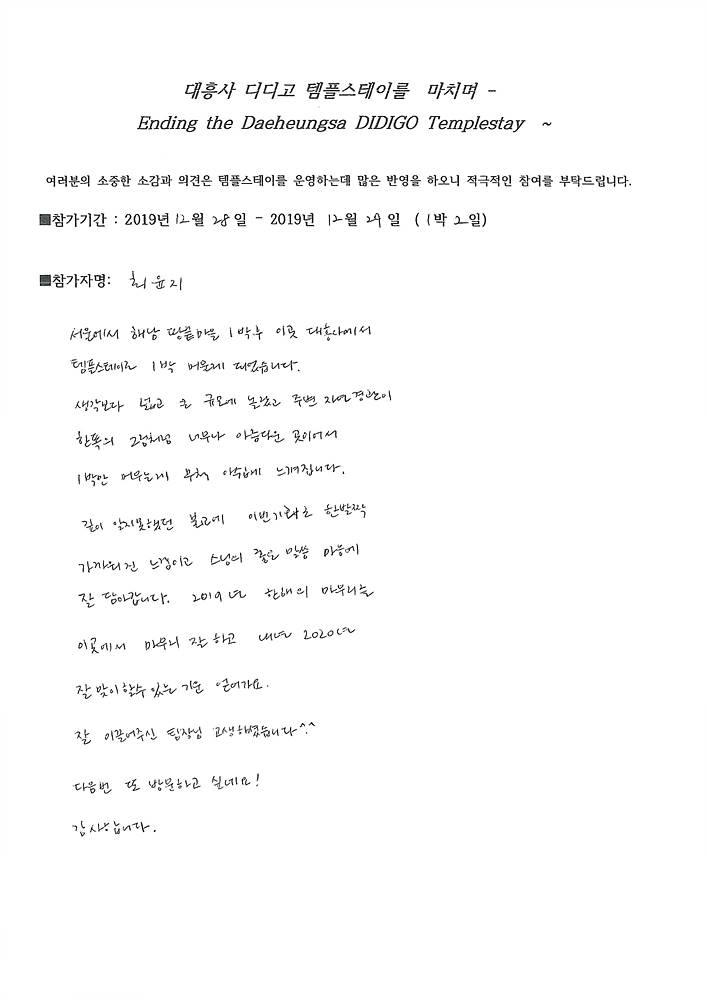 대흥사 디디고 템플스테이를 마치며 -
Ending the Daeheungsa DIDIGO Templestay ~
여러분의 소중한 소감과 의견은 템플스테이를 운영하는데 많은 반영을 하오니 적극적인 참여를 부탁드립니다.
■참가기간 : 2019년 12월 28일 - 2019년 12월 29일 (1박 2일)
■참가자명: 최윤지
서울에서 해남 땅끝마을 1박후 이곳 대흥사에서
템플스테이로 1박 머물게 되었습니다.
생각보다 넓고 큰 규모에 놀랐고 주변 자연경관이
한폭의 그림처럼 너무나 아름다운 곳이어서
1박만 머무는게 무척 아쉽게 느껴집니다.
깊이 알지못했던 불교에 이번기회로 한발짝
가까워진 느낌이고 스님의 좋은 말씀 마음에
잘 담아갑니다. 2019년 한해의 마무리를
이곳에서 마무리 잘 하고 내년 2020년
잘 맞이할수 있는 기운 얻어가요.
잘 이끌어주신 팀장님 고생하셨습니다^^
다음번 또 방문하고 싶네요!
감사합니다.